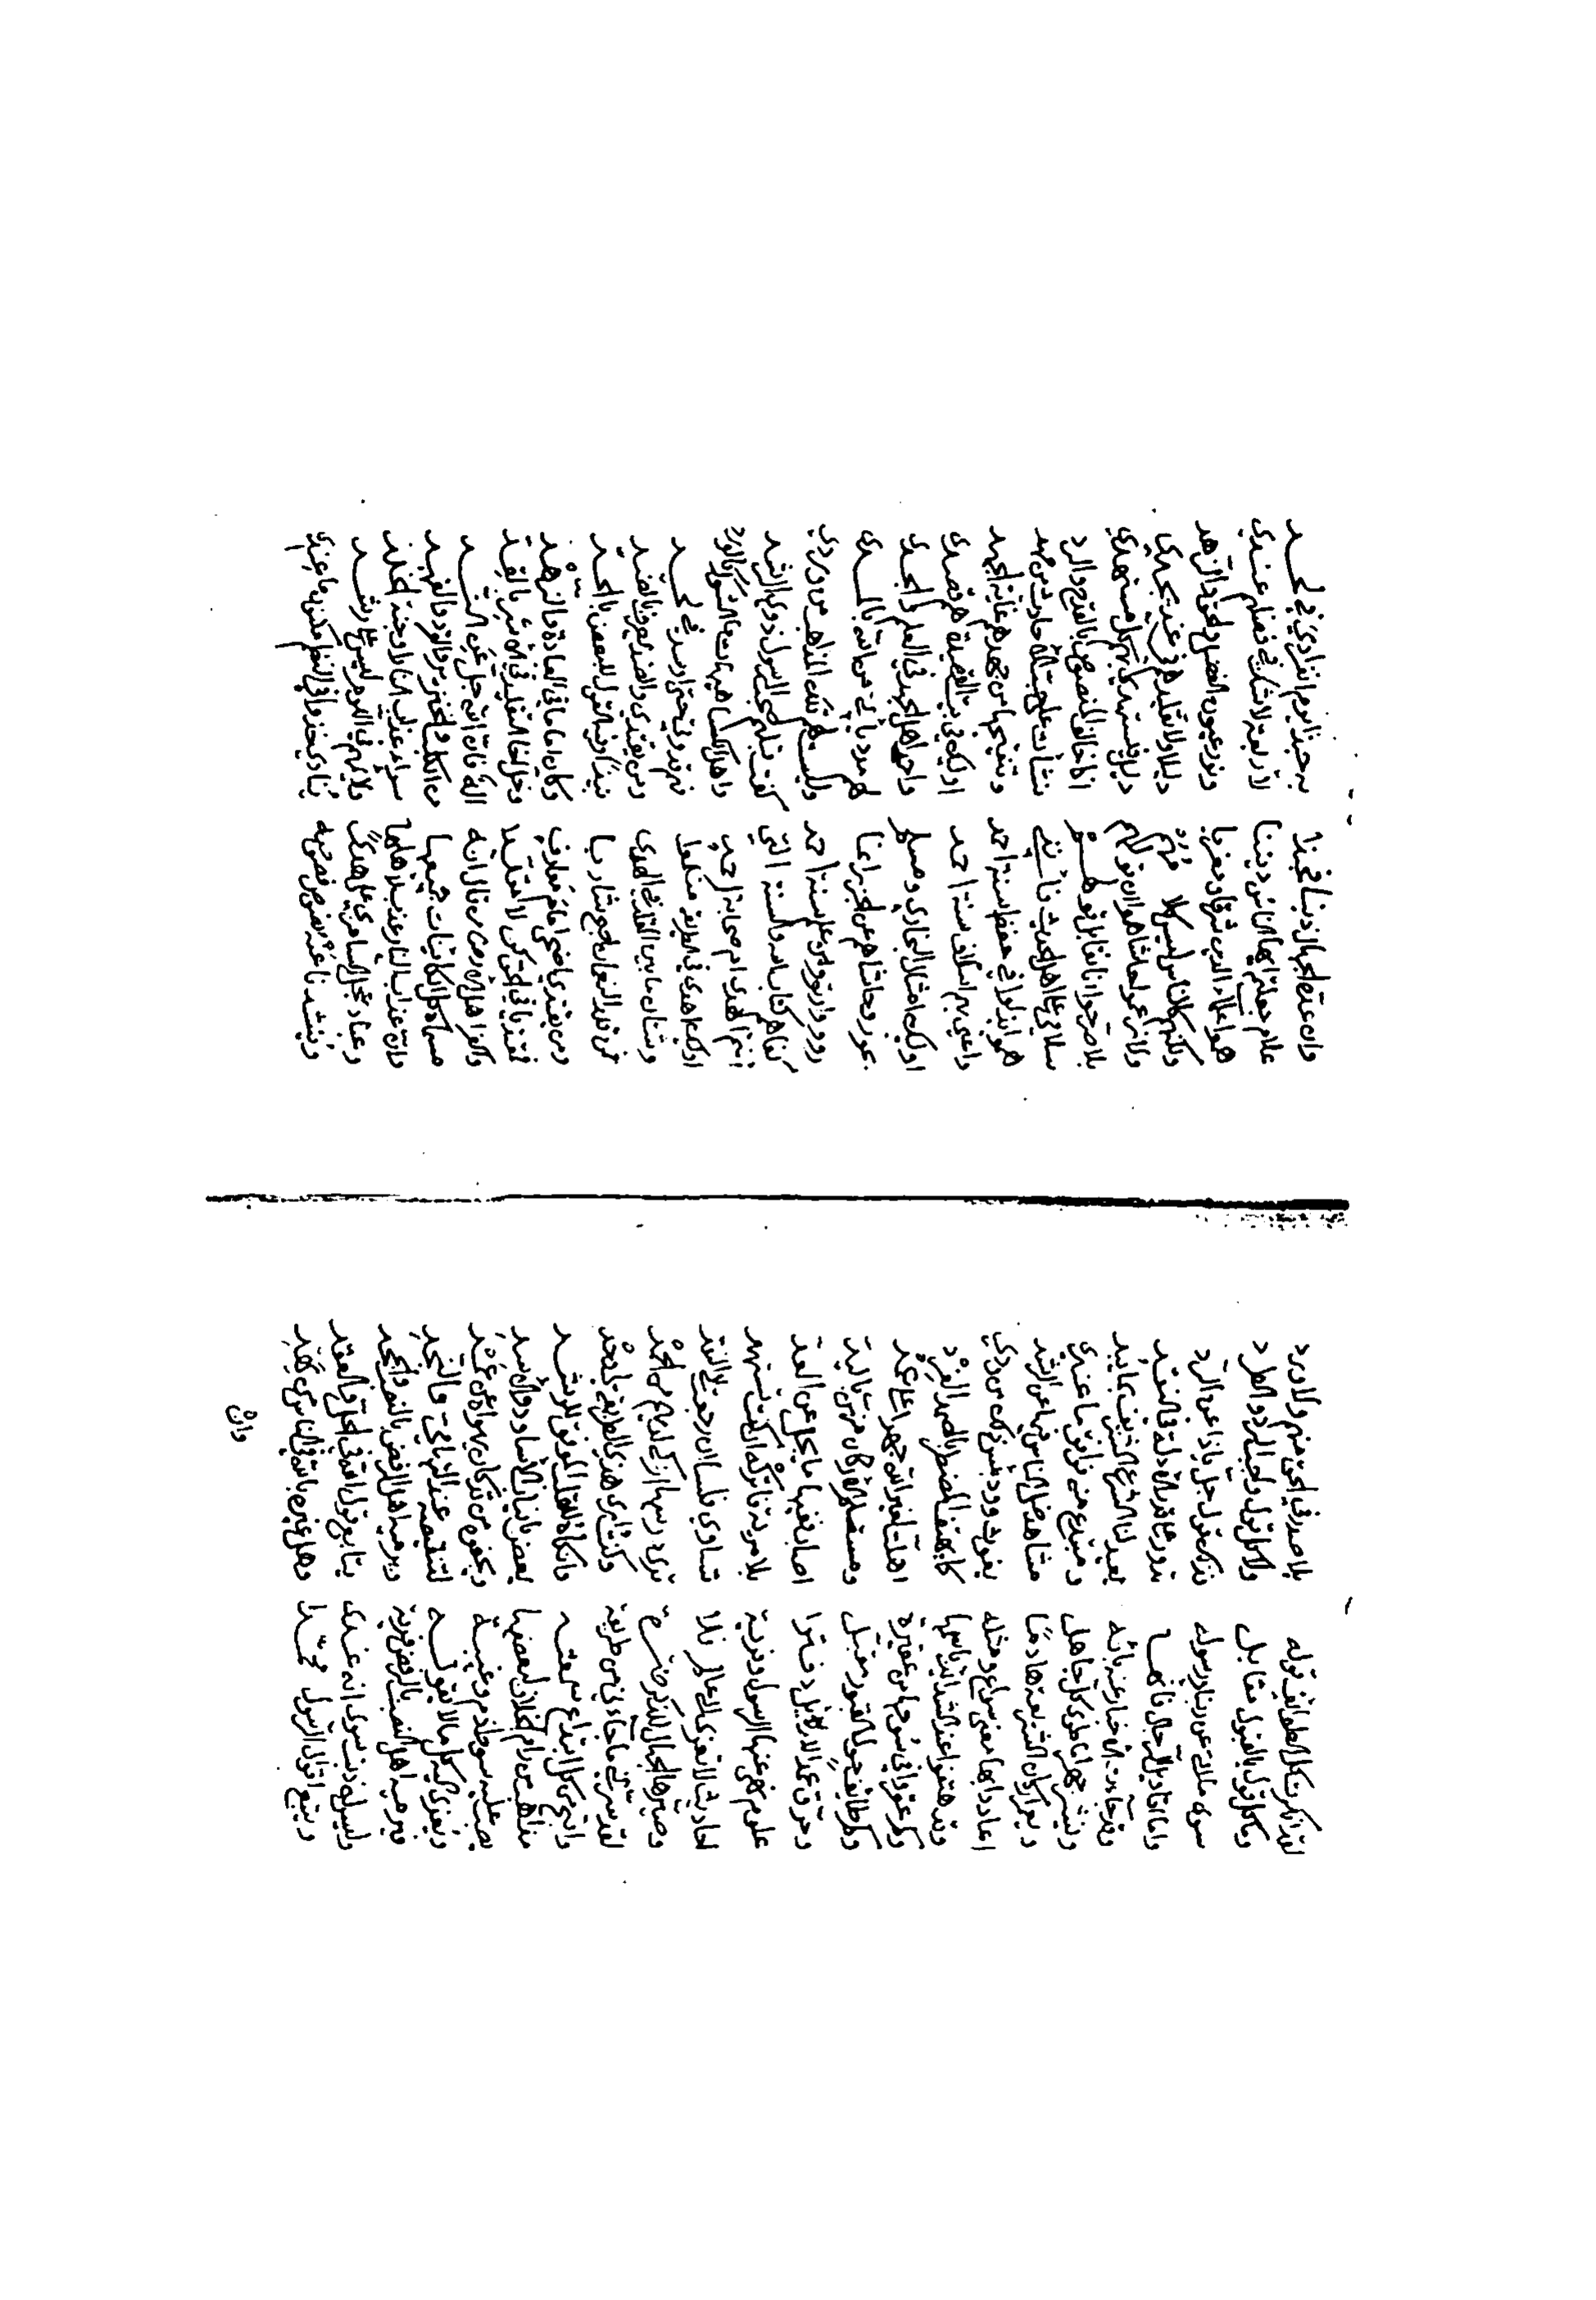 لقد انكرت كل الطوائف قوله بلا صدر في الحق منهم ولا ورد
وما كل قول بالقبول مقابل ولا كل قول واجب الرد والطرد
سوى ما اتى عن ربنا ورسوله فذلك قول جل يا ذا عن الرد
واما اقاويل الرجال فانها تدور على قدر الادلة في النقد
وقد جاءت الاخبار عنه بانه يعيد لنا الشرع الشريف بما يبد
وينشر جهرا ما طوى كل جاهل ومبتدع منه فوافق ما عندي
ويعمر اركان الشريعة هادما مشاهد ضل الناس فيها عن الرشد
اعادوا بها معنى سواع ومثله يغوث وود بئس ذلك من ودي
وقد هتفوا عند الشدائد باسمها كما يهتف المضطر بالصمد الفرد
وكم عقروا في سوحها من عقيرة اهلت لغير الله جهرا على عمد
وكم طائف حول القبور مقبل ومستلم الاركان منهن باليد
وحرق عمدا للدلائل دفترا اصاب ففيها ما يجل عن العد
غلو نهى عنها الرسول وفرية بلا مرية فاتركه ان كنت تستهد
احاديث لا تعزى الى عالم فلا تساوي فلسا ان رجعت الى النقد
وصيرها الجهال للذكر ضرة ترى درسها ازكى لديهم من الحمد
لقد سرني ما جاءني من طريقه وكنت ارى هذي الطريقة لي وحد
واقبح من كل ابتداع سمعته وانكاه للقلب الموفق للرشد
مذاهب من رام الخلاف لبعضها يعض بانياب الاساود والاسد
يصب عليه سوط ذم وغيبة ويجفوه من قد كان يهواه عن عمد
ويعزى اليه كل ما لا يقوله لتنقيصه عند التهامي والنجد
فيرميه اهل النصب بالرفض فرية ويرميه اهل الرفض بالنصب والجحد
وليس له ذنب سوى انه غدى يتابع قول الله في الحل والعقد
ويتبع اقوال الرسول محمد وهل غيره بالله في الناس من يهد
وان
وان عده الجهال ذنبا فحبذا به حبذا يوم انفرادي في لحد
علام جعلتم ايها الناس ديننا لاربعة لا شك في فضلهم عندي
هموا علماء الدين شرقا ومغربا ونور عيون الفضل والحق والزهد
ولكنهم كالناس ليس كلامهم دليلا ولا تقليدهم في غد يجدي
ولا زعموا حاشاهموا ان قولهم دليل فيستهدي به كل مستهدي
بلا صرحوا انا نقابل قولهم اذا خالف المنصوص بالقدح والرد
سلامي على اهل الحديث فانني نشأت على حب الاحاديث من مهد
هموا بذلوا في حفظ سنة احمد وتنقيحها من جهدهم غاية الجهد
واعني بهم اسلاف سنة احمد اولئك في بيت القصيد هم قصدي
اولئك امثال البخاري ومسلم واحمد اهل الجد في العلم والجد
بحور وحاشاهم عن الجزر انما لهم مدد يأتي من الله بالمد
رووا وارتووا من علم سنة احمد وليس لهم تلك المذاهب من وردي
كفاهم كتاب الله والسنة التي كفت قبلهم صحب الرسول ذوي الرشد
اانتم اهدى ام صحابة احمد واهل الكسا هيهات ما الشوك كالورد
اولئك اهدى في الطريقة منكموا فهم قدوتي حتى اوسد في لحد
وشتان ما بين المقلد في الهدى ومن يقتدي والضد يعرف بالضد
فمن قلد النعمان اصبح شاربا نبيذا وفيه القول للبعض بالحد
ومن يقتدي اضحى امام معارف وكان اويسا في العبادة والزهد
فمقتديا في الحق كن لا مقلدا وخل اخا التقليد في الاسر بالقد
واكفر اهل الارض من قال انه اله فان الله جل عن الند
مسماه كل الكائنات جميعها من الكلب والخنزير والقرد والفهد
وان عذاب النار عذب لاهلها سواء عذاب النار او جنة الخلد
وعباد عجل السامري على هدى ولائمهم في اللوم ليس على رشد
وينشدنا عنه نصوص فصوصه ينادي خذوا في النظم مكنون ما عندي